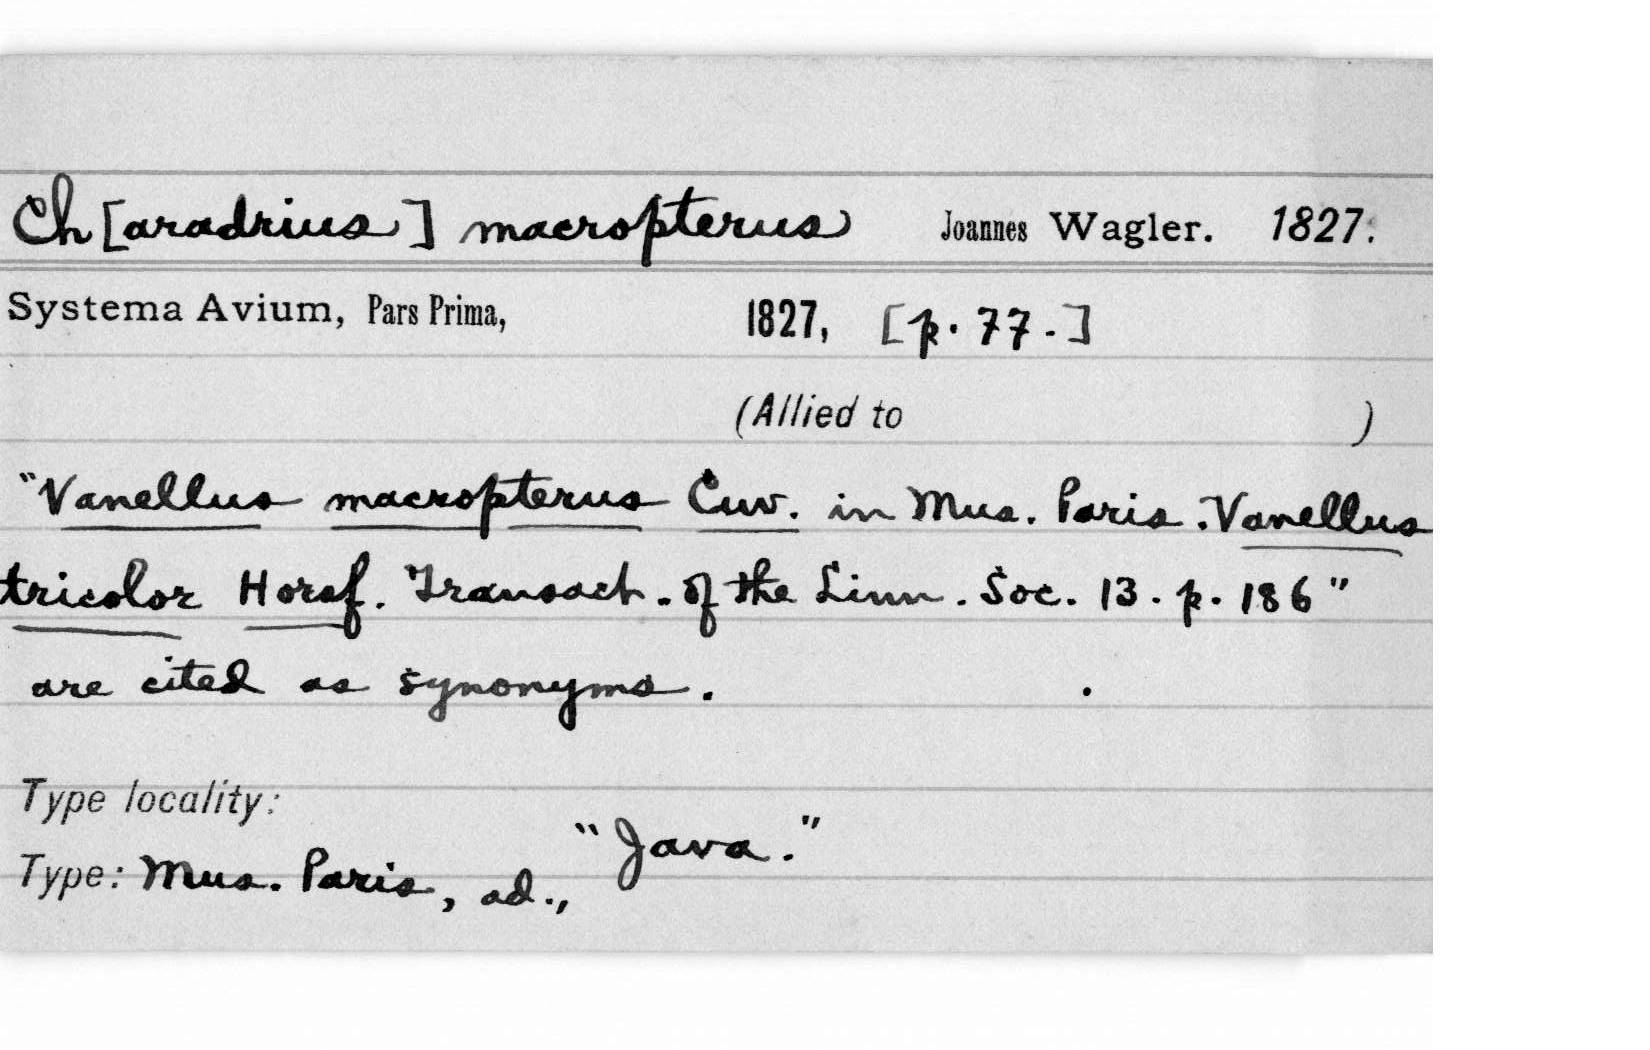 Ch[aradrius] macropterus Joannes Wagler. 1827.
Systema Avium, Pars Prima, 1827, [p. 77.]
(Allied to )
"Vanellus macropterus Cuv. in Mus. Paris. Vanellus
tricolor Horsf. Transact. of the Linn. Soc. 13. p. 186"
are cited as synonyms.
Type locality:
"Java."
Type: Mus. Paris, ad.,